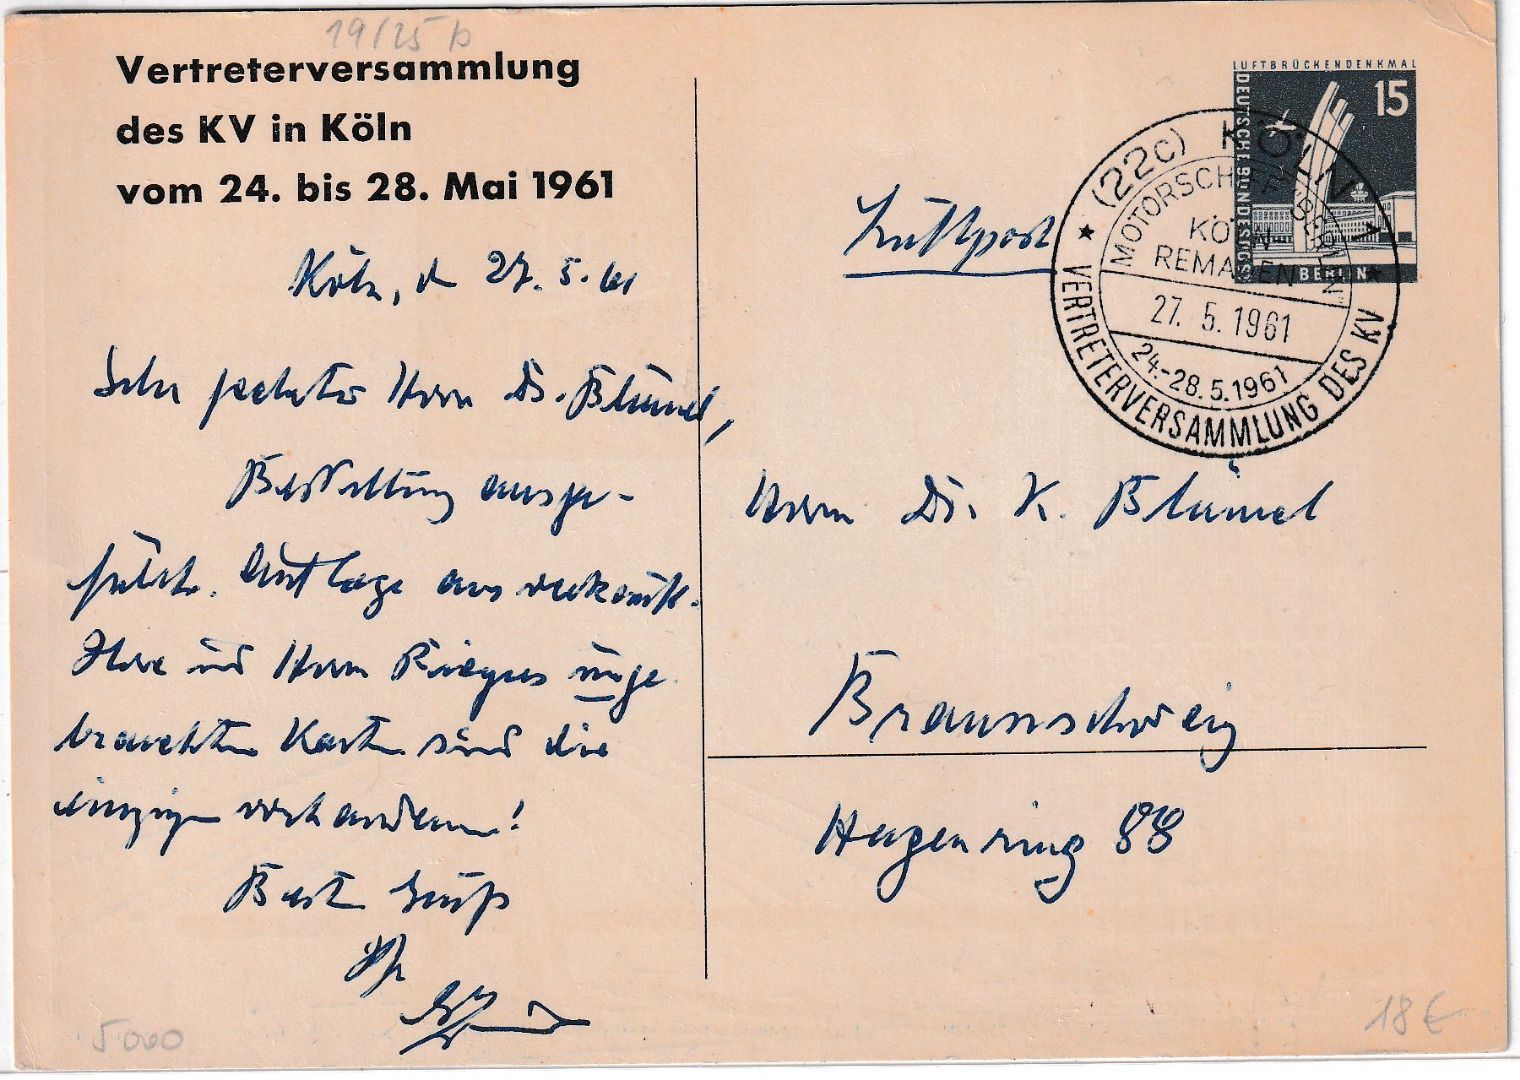 19/25 b
Vertreterversammlung
des KV in Köln
vom 24. bis 28. Mai 1961
Köln, d 27. 5. 61
Sehr geehrter Herr Dr. Blümel,
Bestellung ausge-
führt. Auflage ausverkauft.
Ihre und Herrn unge
brauchten Karten sind die
einzigen vorhandenen!
Besten Gruß
Ihr
5000
LUFTBRÜCKENDENKMAL
DEUTSCHE BUNDESPOST
15
BERLIN
(22c) KÖLN 1
MOTORSCHIFF BERLIN
KÖLN-
REMAGEN
27. 5. 1961
24.-28.5.1961
VERTRETERVERSAMMLUNG DES KV
Luftpost
Herrn Dr. K. Blümel
Braunschweig
Hagenring 88
18 €